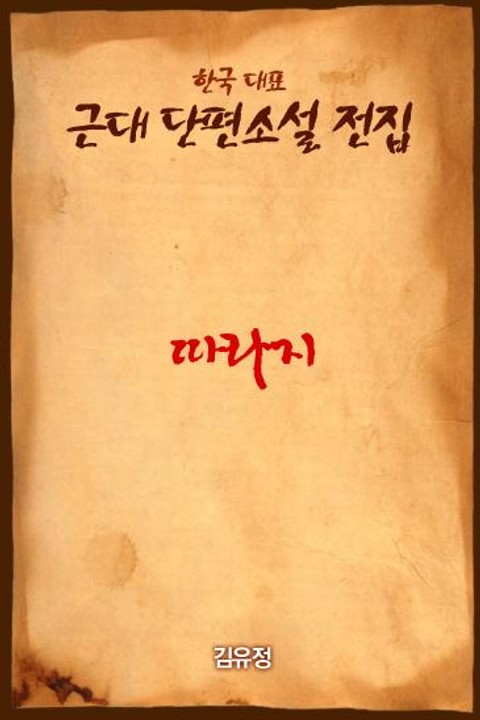 한국 대표
근대 단편소설 전집
따라지
김유정